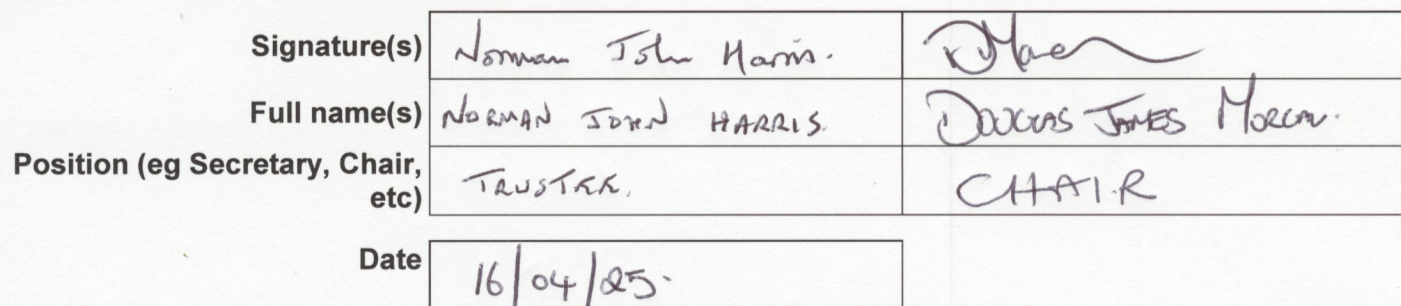 Signature(s) Norman John Harris. DJMor
Full name(s) NORMAN JOHN HARRIS. DOUGLAS JAMES MORGAN.
Position (eg Secretary, Chair, TRUSTEE. CHAIR
etc)
Date 16/04/25.